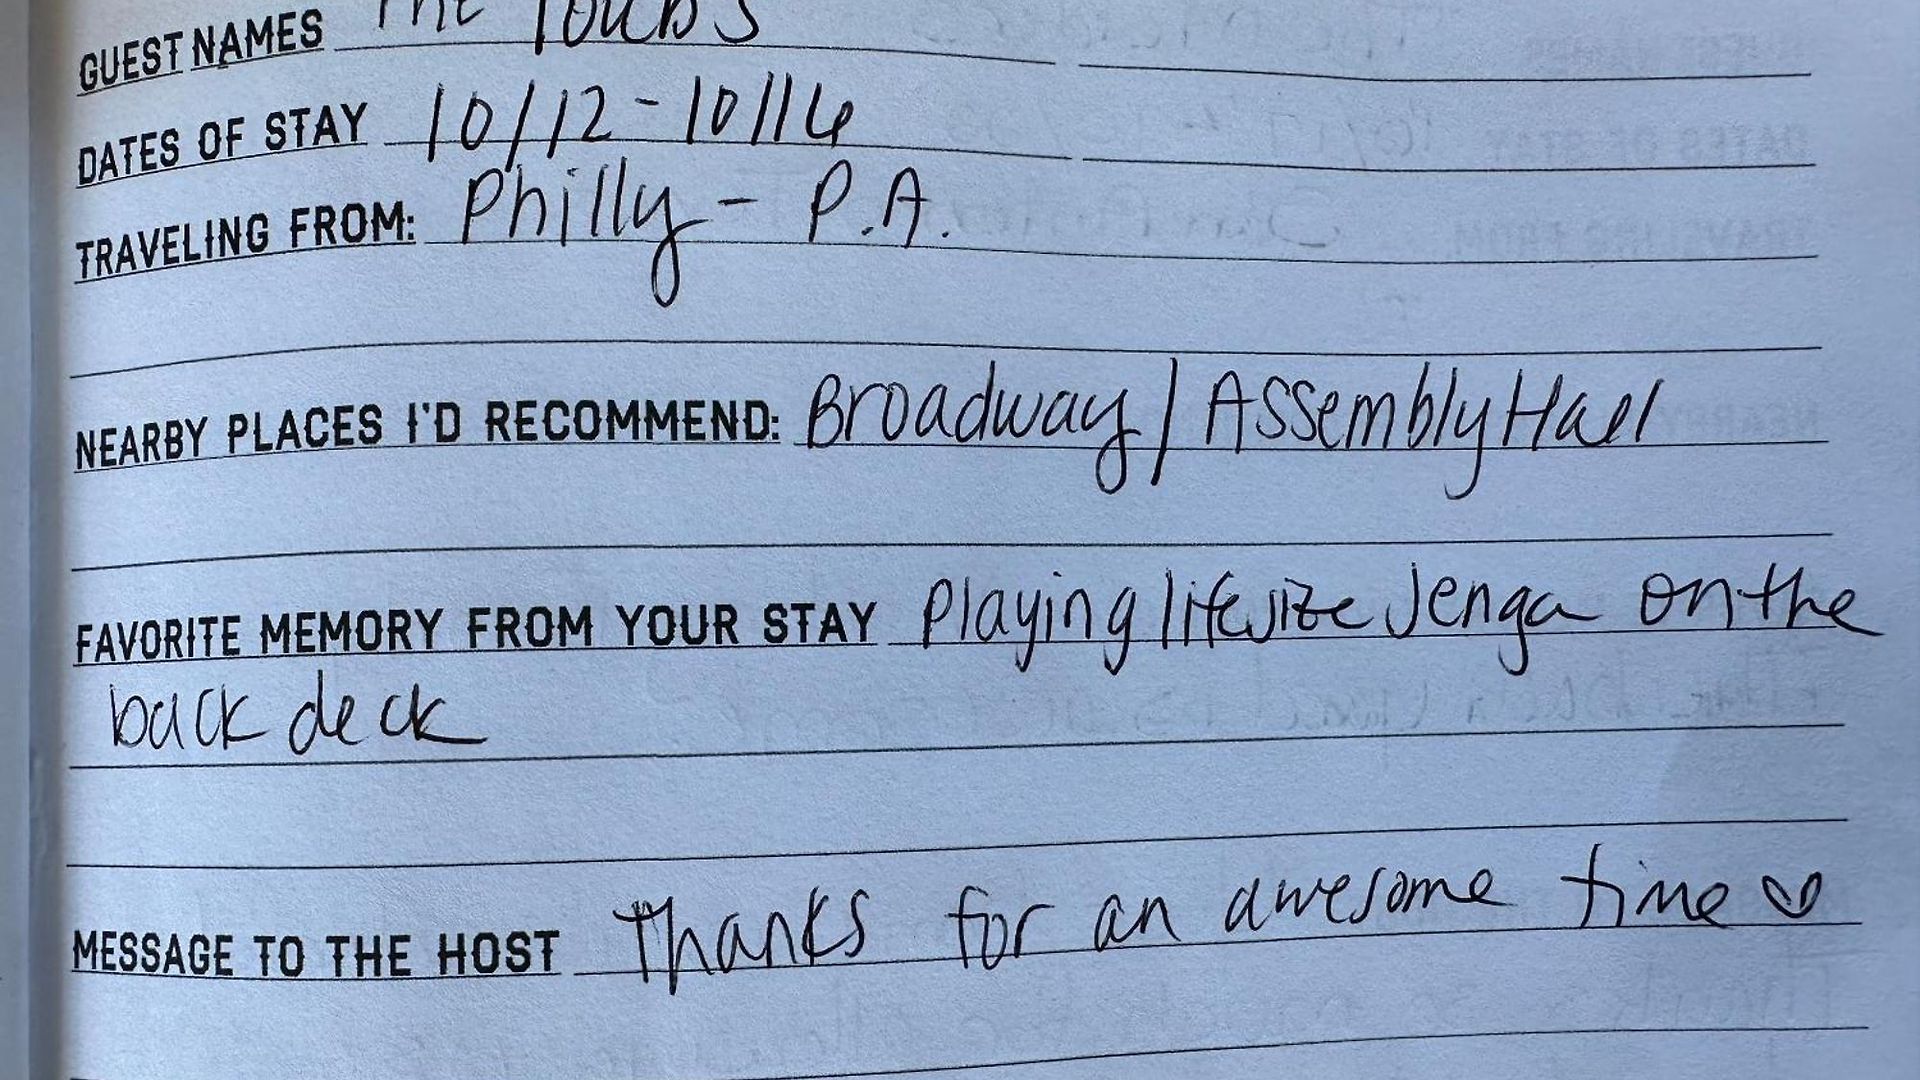 GUEST NAMES The
DATES OF STAY 10/12 - 10/16
TRAVELING FROM: Philly - P.A.
NEARBY PLACES I'D RECOMMEND: Broadway / Assembly Hall
FAVORITE MEMORY FROM YOUR STAY Playing lifesize Jenga on the
back deck
MESSAGE TO THE HOST Thanks for an awesome time ♡